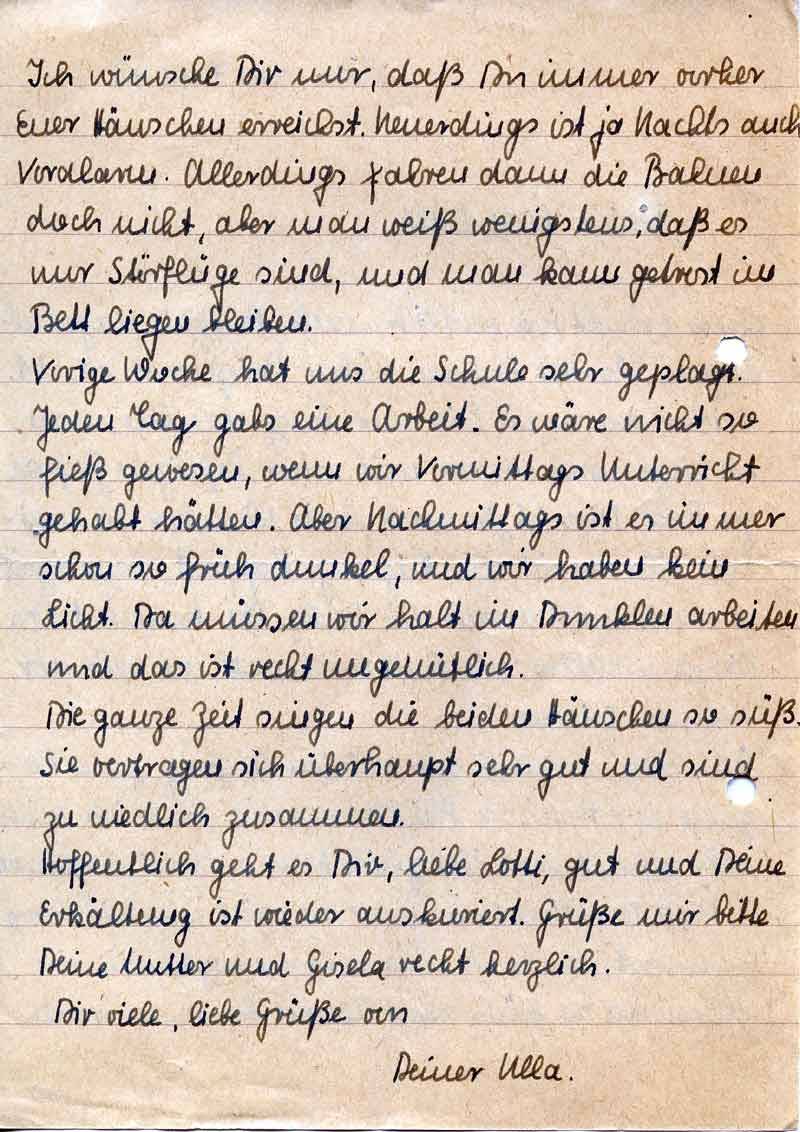 Ich wünsche Dir nur, daß Du immer vorher
Euer Häuschen erreichst. Neuerdings ist ja Nachts auch
Voralarm. Allerdings fahren dann die Bahnen
doch nicht, aber man weiß wenigstens, daß es
nur Störflüge sind, und man kann getrost im
Bett liegen bleiben.
Vorige Woche hat uns die Schule sehr geplagt.
Jeden Tag gabs eine Arbeit. Es wäre nicht so
fieß gewesen, wenn wir Vormittags Unterricht
gehabt hätten. Aber Nachmittags ist es immer
schon so früh dunkel, und wir haben kein
Licht. Da müssen wir halt im Dunklen arbeiten
und das ist recht ungemütlich.
Die ganze Zeit singen die beiden Hänschen so süß.
Sie vertragen sich überhaupt sehr gut und sind
zu niedlich zusammen.
Hoffentlich geht es Dir, liebe Lotti, gut und Deine
Erkältung ist wieder auskuriert. Grüße mir bitte
Deine Mutter und Gisela recht herzlich.
Dir viele, liebe Grüße von
Deiner Ulla.